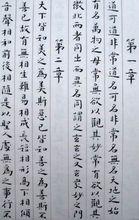 第一章
道可道非常道名可名非常名無名天地之始
有名萬物之母常無欲以觀其妙常有欲以觀其
徼此兩者同出而異名同謂之玄玄之又玄衆妙之門
第二章
天下皆知美之為美斯惡已皆知善之為善斯不
善已故有無相生難易相成長短相形高下相傾
音聲相和前後相隨是以聖人處無為之事行不